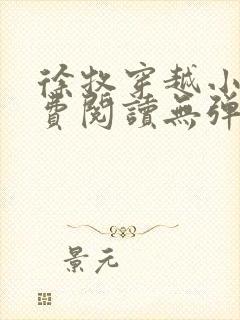 徐牧穿越小
費閱讀無彈
景元